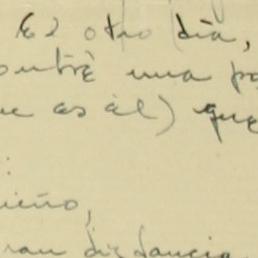 El otro día,
ontré una pa
ue es él) que
:
ueño,
ran distancia